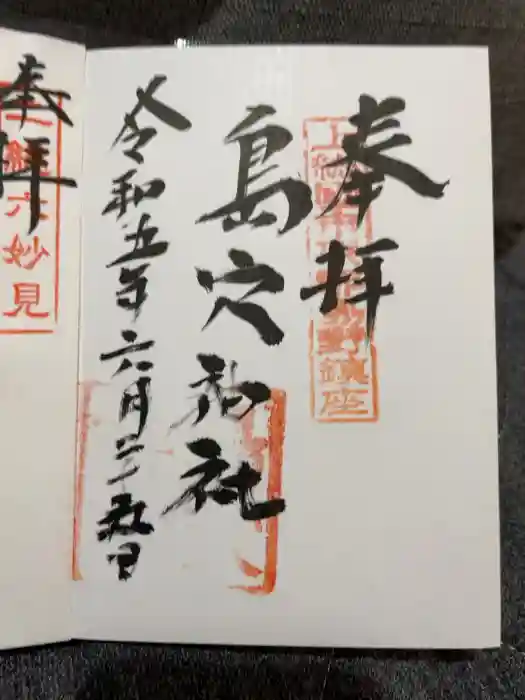 奉拝
上総国市原郡島野鎮座
島穴神社
令和五年六月二十五日
奉拝
六妙見